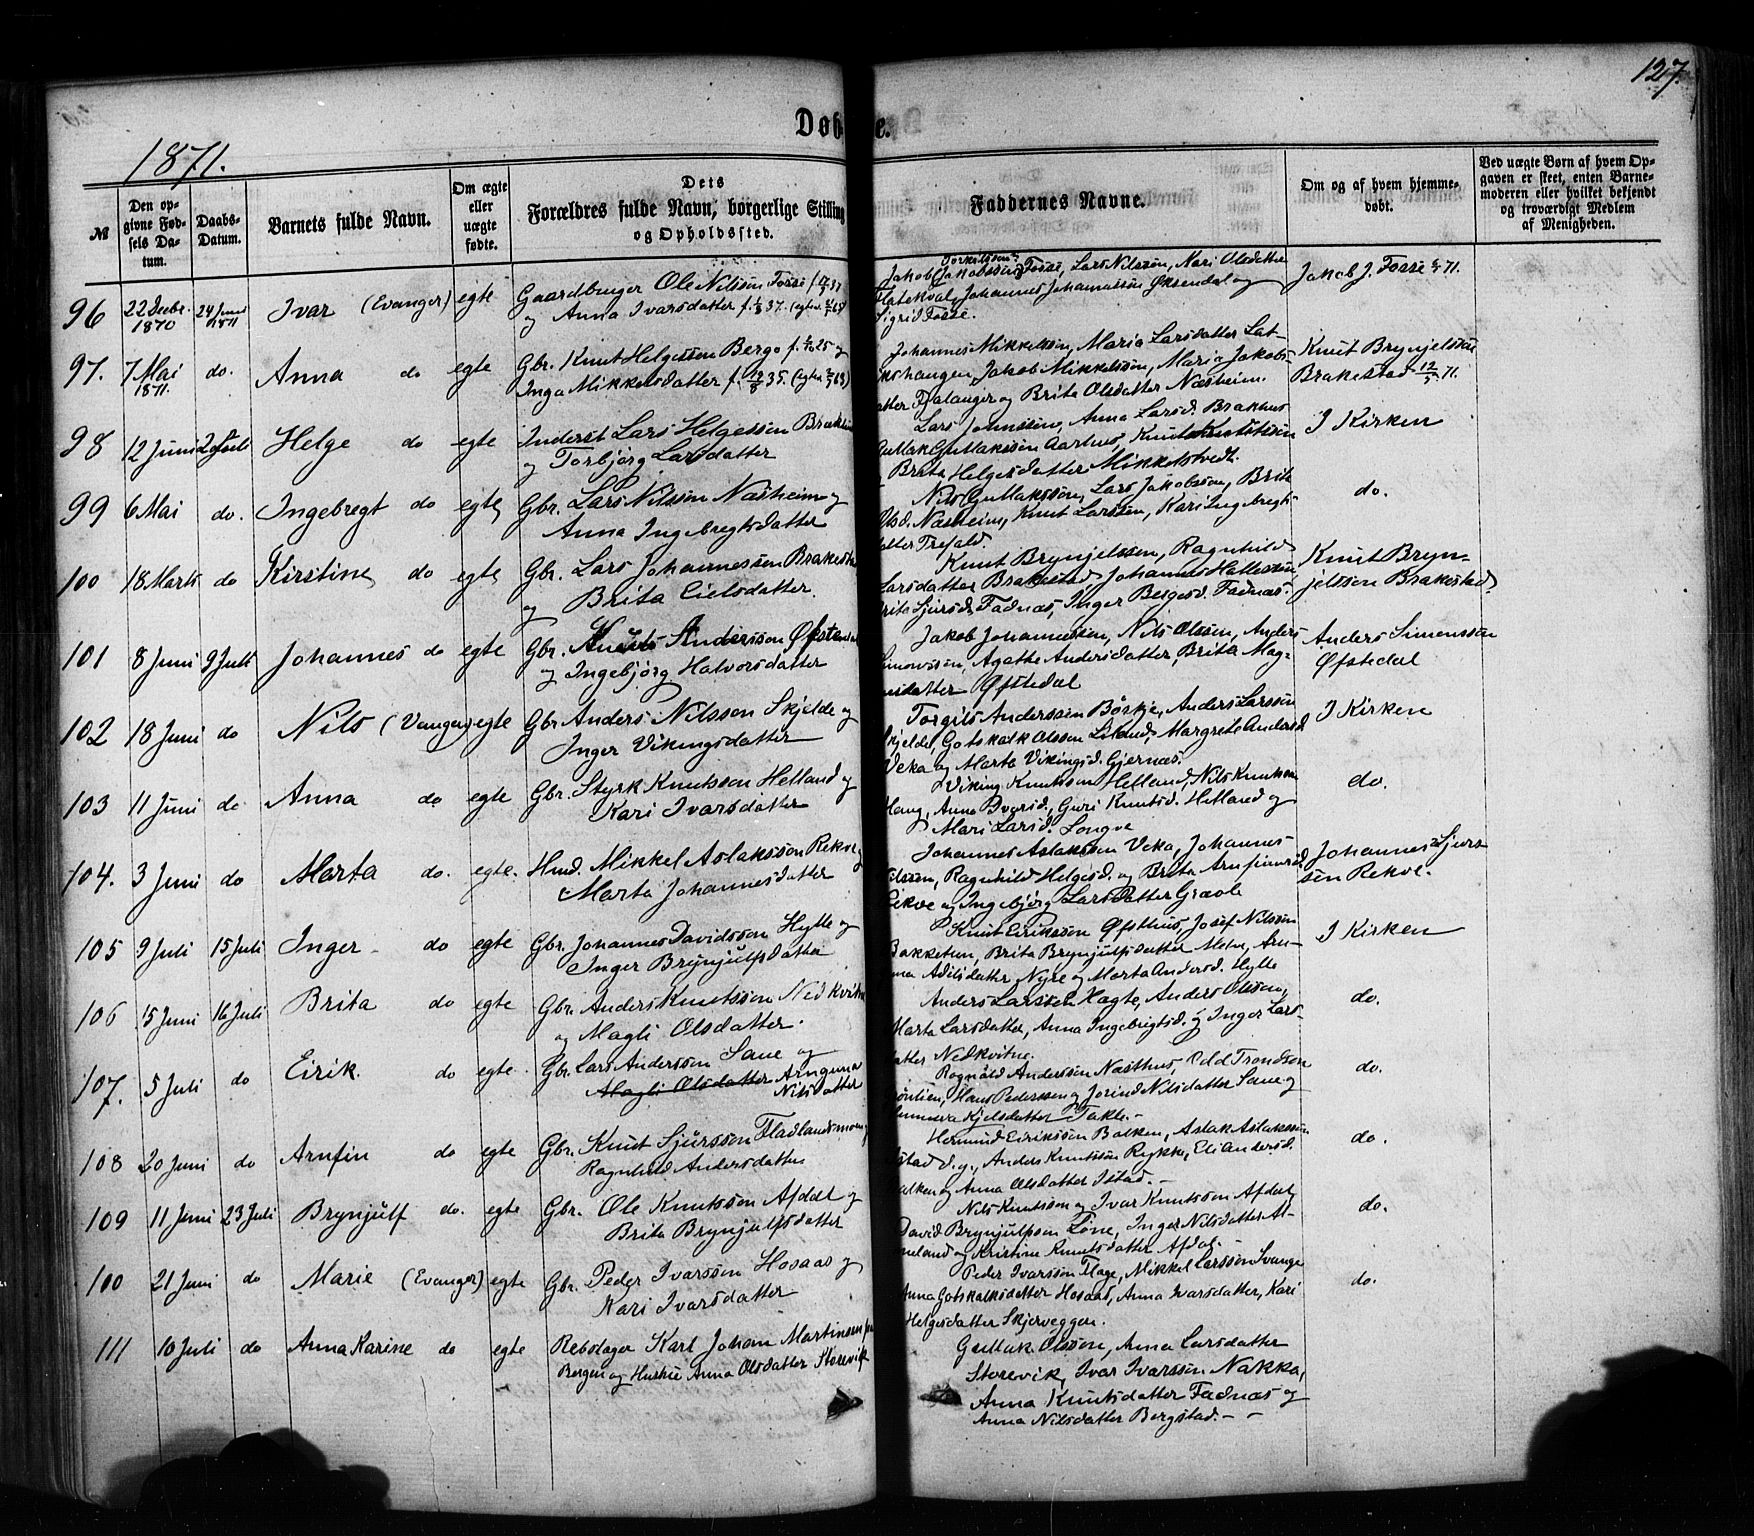 127.
Døbte.
1871.
№ | Den opgivne Fødsels Datum. | Daabs-Datum. | Barnets fulde Navn. | Om ægte eller uægte fødte. | Dets Forældres fulde Navn, borgerlige Stilling og Opholdssted. | Faddernes Navne. | Om og af hvem hjemmedøbt. | Ved uægte Børn af hvem Opgaven er skeet, enten Barnemoderen eller hvilket bekjendt og troværdigt Medlem af Menigheden.
96 22 Decbr. 1870 24 Juni 1871 Ivar (Evanger) egte Gaardbruger Ole Nilssøn Fosse
og Anna Ivarsdatter
Jakob Jakobssøn Fosse, Lars Nilssøn, Kari Olsdatter
Flatekval, Johannes Johannessøn Øksendal og
Sigrid Fosse.
Jakob J. Fosse 71.
97. 7 Mai 1871. do. Anna do egte Gbr. Knut Helgessøn Berge
Inga Mikkelsdatter
Johannes Mikkelssøn, Maria Larsdatter
Jakob Mikkelssøn, Maria Jakobs-
atter Fjalanger og Brita Olsdatter Næsheim.
Knut Brynjelssøn
Brakestad 12/5 71.
98 12 Juni 2 Juli Helge do egte Inderst Lars Helgessøn
og Torbjørg Larsdatter
Lars Johnssøn, Anna Larsd. Brakhus
Gullak Gullakssøn Aarhus, Knut
Brita Helgesdatter Mikkelstvedt.
I Kirken
99 6 Mai do. Ingebregt do egte Gbr. Lars Nilssøn Næsheim og
Anna Ingebregtsdatter
Nils Gullakssøn, Lars Jakobssøn, Brita
Olsd. Næsheim, Knut Larssøn, Kari Ingebregts-
datter Trefald.
do.
100 18 Marts do Kirstine do egte Gbr. Lars Johannessøn
og Brita Eielsdatter.
Knut Brynjelssøn, Ragnhild
Larsdatter Brakestad, Johannes Hallessøn
Brita Sjursd. Fadnæs, Inger Bergesd. Fadnæs.
Knut Bryn-
jelssøn Brakestad.
101 8 Juni 9 Juli Johannes do egte Gbr. Anders Andersson
og Ingebjørg Halvorsdatter
Jakob Johannessøn, Nils Olssøn, Anders
Simonssøn, Agathe Andersdatter, Brita Mag-
nisdatter Øfstedal
Anders Simonssøn
Øfstedal
102 18 Juni do Nils (Vangen) egte Gbr. Anders Nilsson Skjelde og
Inger Vikingsdatter
Torgils Anderssøn Børkje, Anders Larssøn
Skjelde, Gotskalk Olssøn Lilland, Margrete Andersd.
Veka og Marta Vikingsd. Gjernæs.
I Kirken
103 11 Juni do Anna do egte Gbr. Styrk Knutsson Helland og
Kari Ivarsdatter
Viking Knutsson Helland, Nils Knutsson
Haug, Anna Ivarsd., Guri Knutsd. Helland og
Mari Larsd. Longve
do.
104. 3 Juni do Marta do. egte. Hmd. Mikkel Aslaksson Rekve
Marta Johannesdatter
Johannes Aslaksson Veka, Johannes
Ragnhild Helgesd. og Brita Arnfinnsd.
Rekve og Ingebjørg Larsdatter Græe
Johannes Sjurs-
søn Rekve.
105 9 Juli 15 Juli Inger do egte Gbr. Johannes Davidsson Hylle og
Inger Brynjulfsdatter
Knut Erikssøn Øfsthus, Josef Nilssøn
Bakketun, Brita Brynjulfsdatter Melve,
Adilsdatter Nyre og Marta Andersd. Hylle
I Kirken
106 15 Juni 16 Juli Brita do egte Gbr. Anders Knutsson Nedkvitne
og Magli Olsdatter.
Anders Larssøn Hagte, Anders Olssøn,
Marta Larsdatter, Anna Ingebrigtsd. og Inger Lars-
datter Nedkvitne.
do.
107. 5 Juli do Eirik. do egte. Gbr. Lars Andersson Saue og
Magli Olsdatter Arnguna
Nilsdatter
Ragnald Anderssøn Næsthus, Odd Trondson
Hans Pedersson og Jorind Nilsdatter Saue og
Gunneva Kjelsdatter Takle.
do.
108 20 Juni do Arnfin do egte Gbr. Knut Sjursson Fladlandsmoen
Ragnhild Andersdatter
Hermund Eiriksson Balken, Aslak Aslaksson
Istad d.y., Anders Knutsson Rykke, Eli Andersd.
Balken og Anna Olsdatter Istad.
do.
109 11 Juni 23 Juli Brynjulf do. egte Gbr. Ole Knutsson Afdal og
Brita Brynjulfsdatter
Nils Knutsson og Ivar Knutsson Afdal,
David Brynjulfsson Løne, Inger Nilsdatter
og Kristine Knutsdatter Afdal.
do.
100 21 Juni do Marie (Evanger) egte Gbr. Peder Ivarssøn Hosaas og
Kari Ivarsdatter
Peder Ivarssøn Flage, Mikkel Larssøn Evanger
Anna Gotskalksdatter Hosaas, Anna Ivarsdatter, Kari
Helgesdatter Skjerveggen.
do.
111 10 Juli do Anna Karine do egte Rebslager Karl Johan Martinsen fra
Bergen og Hustru Anna Olsdatter Storevik
Gullak Olssøn, Anna Larsdatter
Storevik, Ivar Ivarssøn Nakka,
Anna Knutsdatter Fadnæs og
Anna Nilsdatter Bergstad.